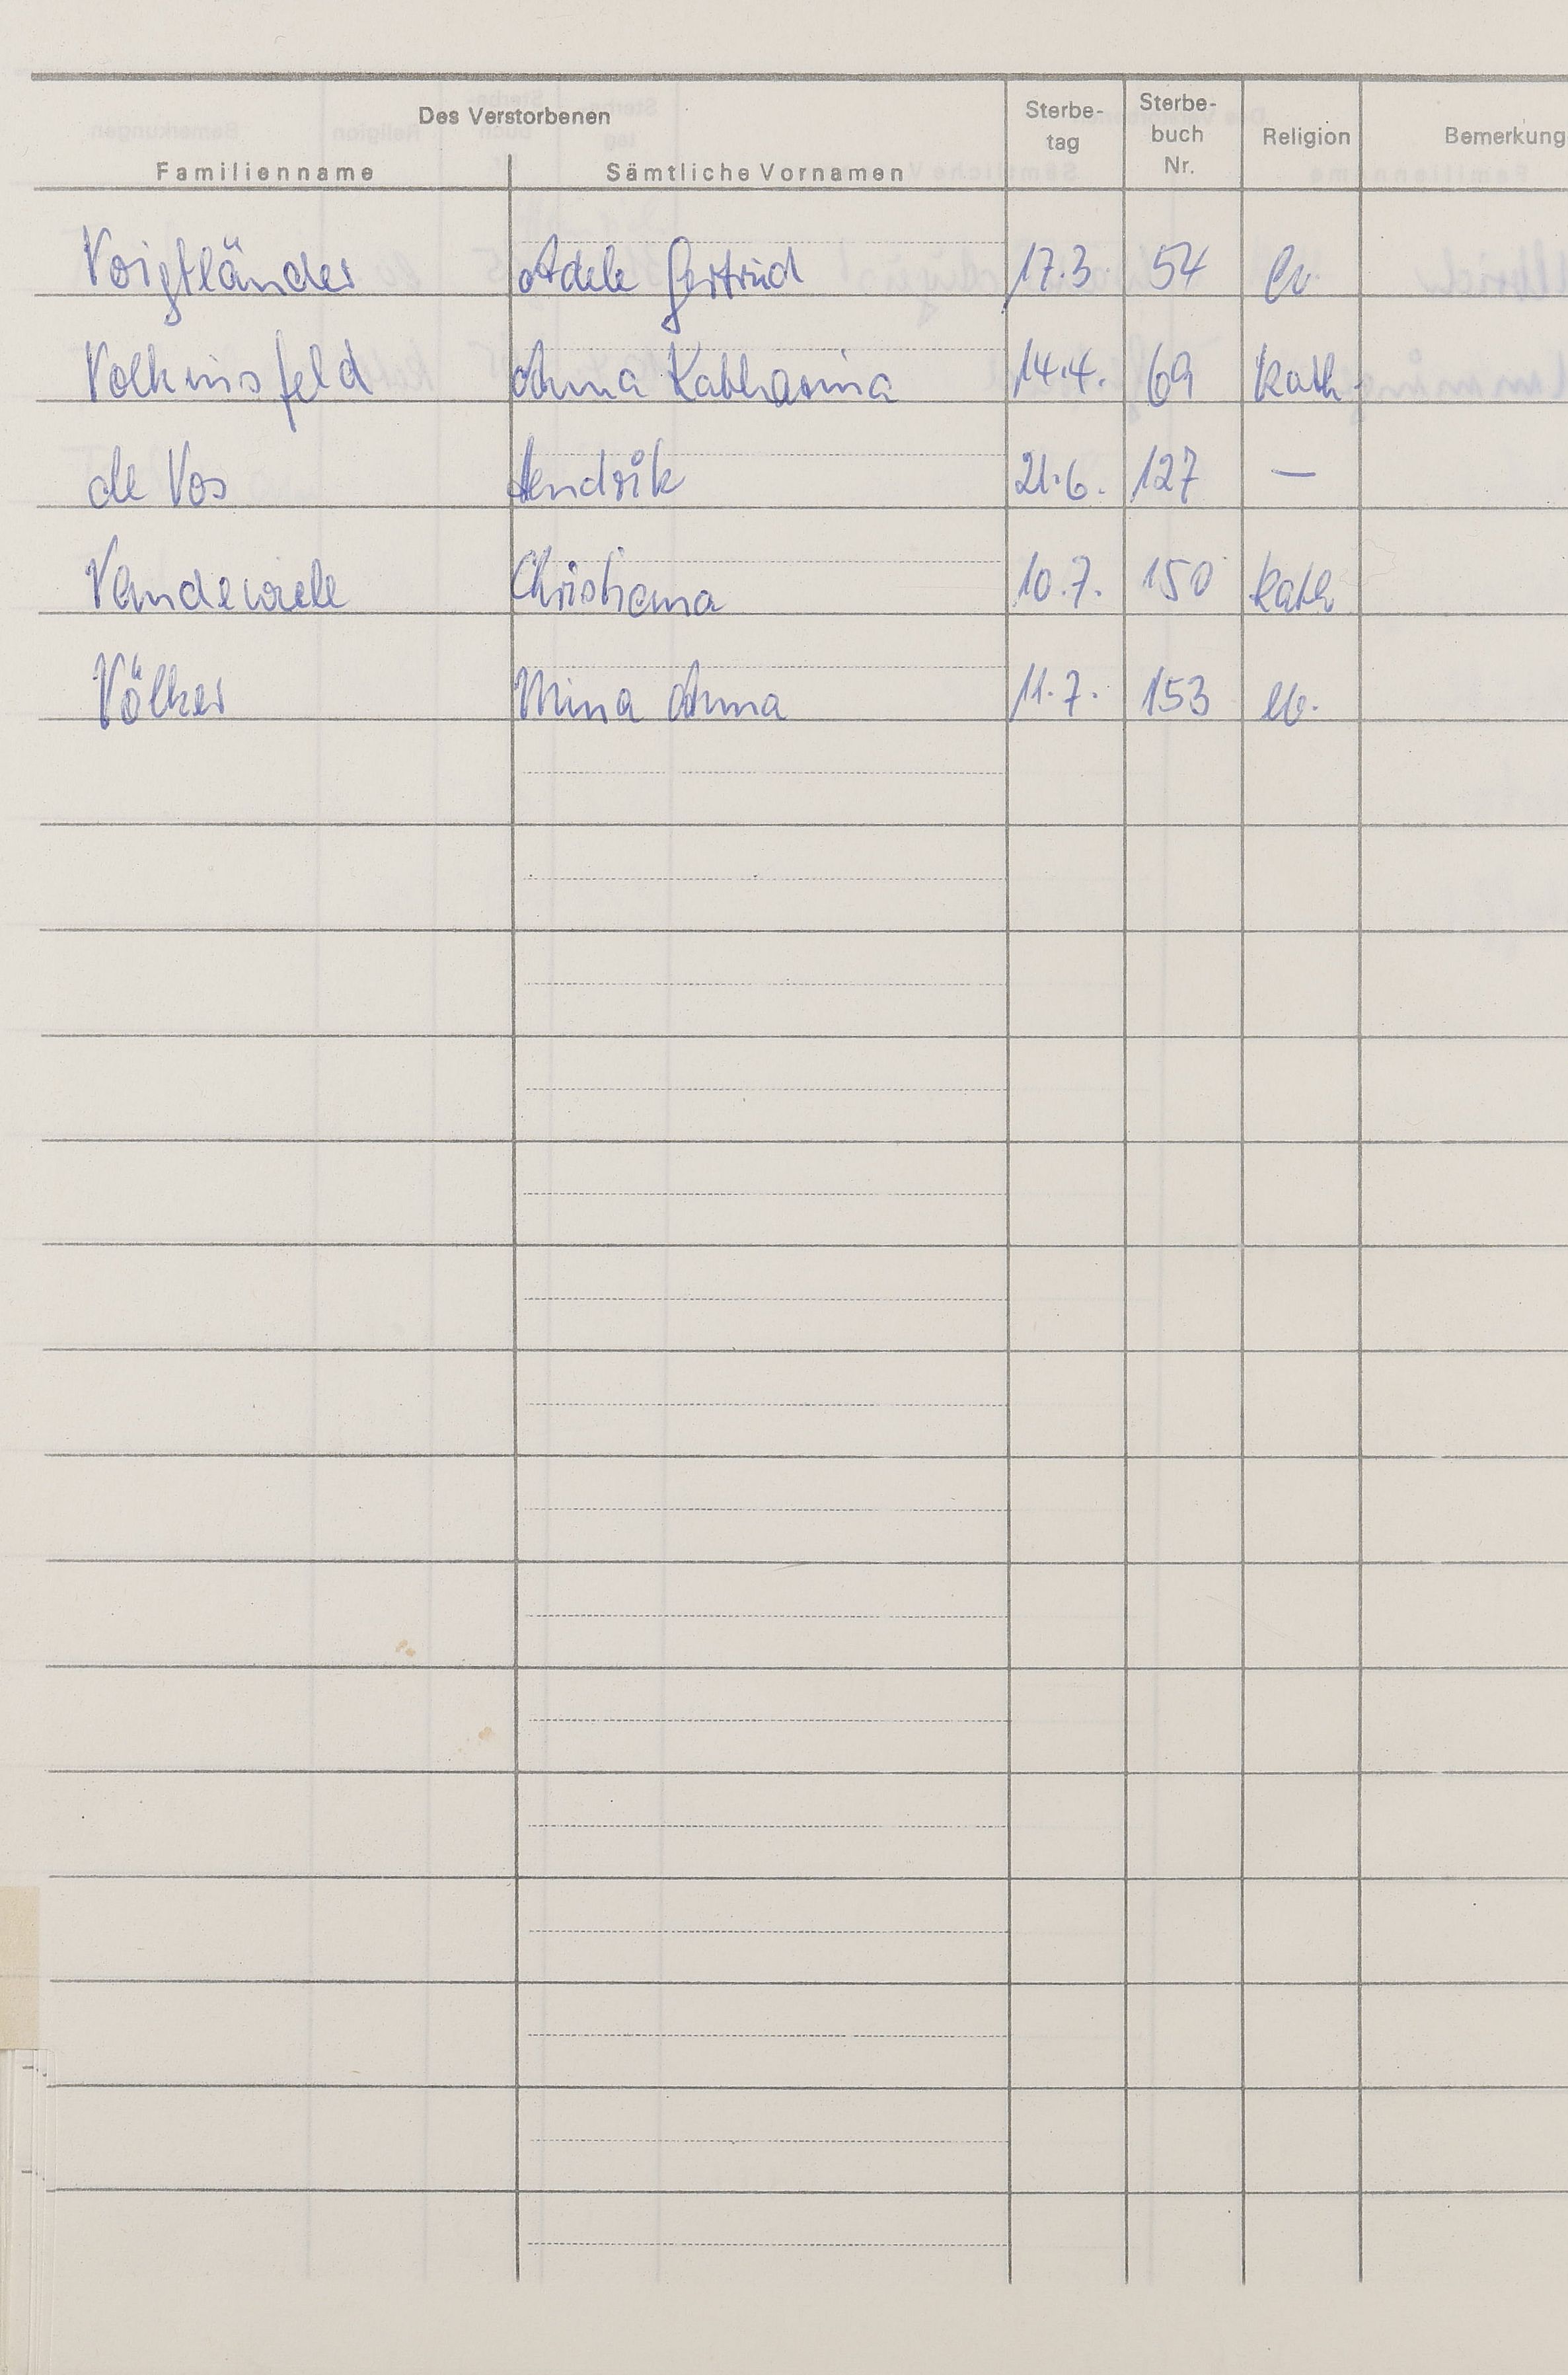 Des Verstorbenen
Familienname Sämtliche Vornamen Sterbe-tag Sterbe-buch Nr. Religion Bemerkung
Voigtländer Adele Gertrud 17.3. 54 ev.
Volkmsfeld Anna Katharina 14.4. 69 kath.
de Vos Hendrik 21.6. 127 —
Vandewiele Christiana 10.7. 150 kath
Völker Mina Anna 11.7. 153 ev.